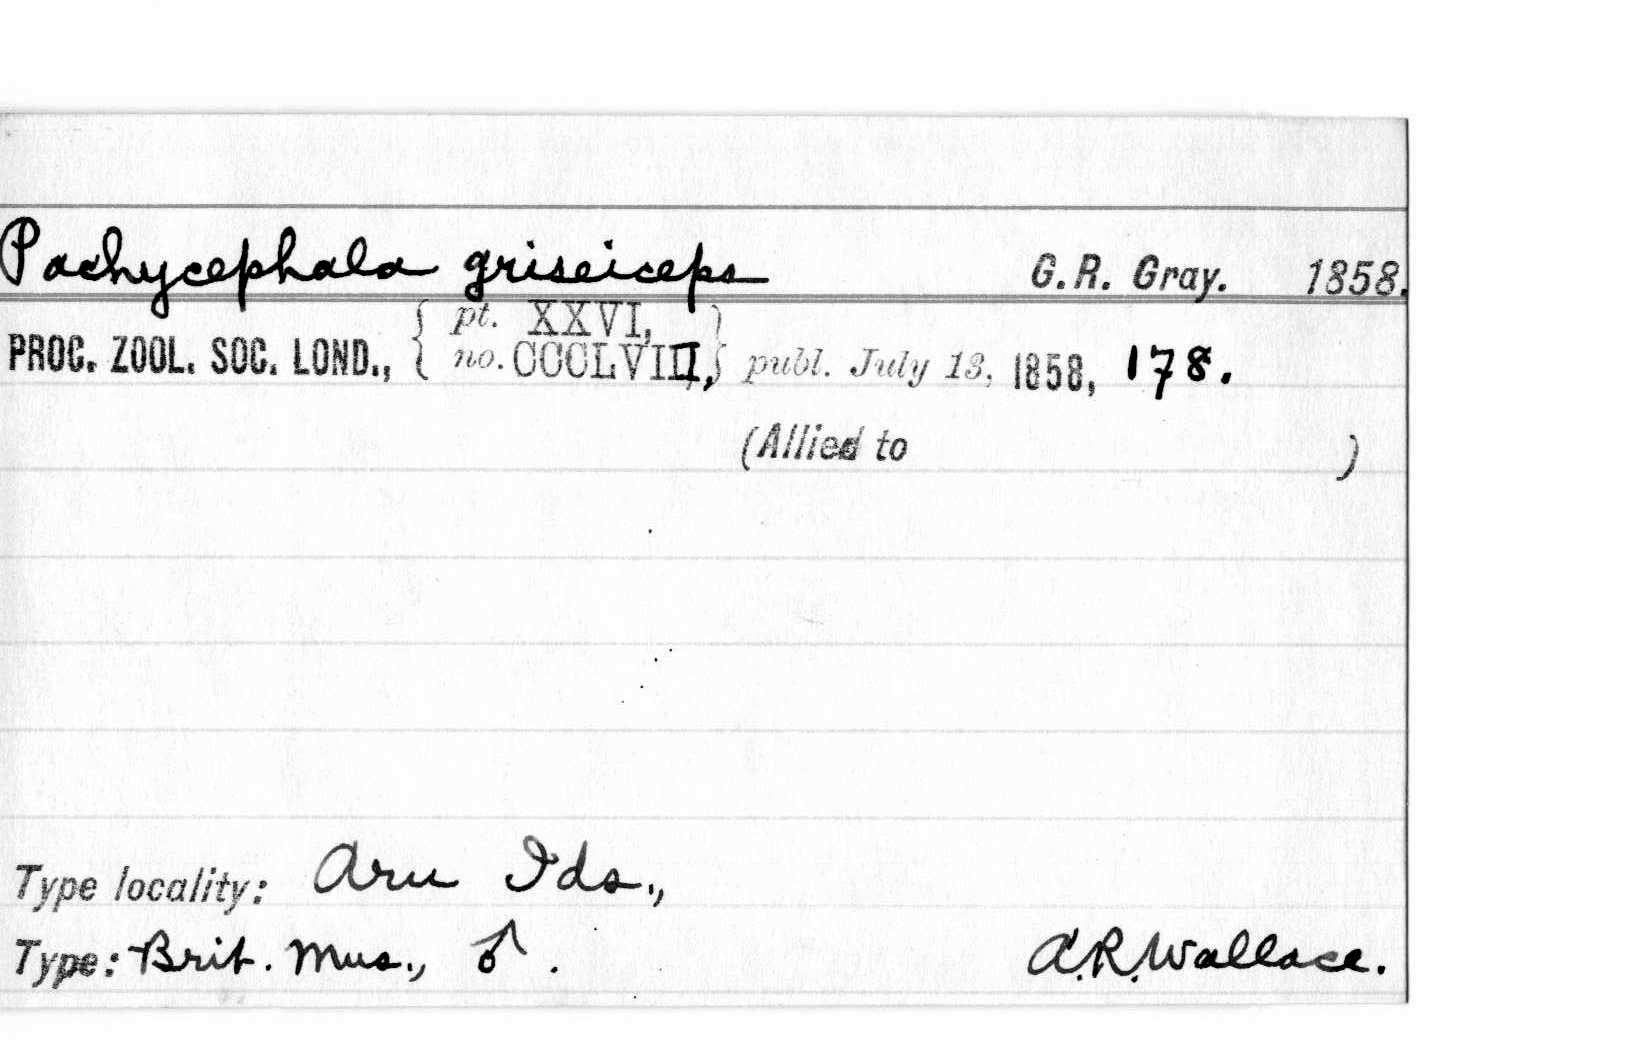 Pachycephala griseiceps G.R. Gray. 1858.
PROC. ZOOL. SOC. LOND., { pt. XXVI, no. CCCLVIII, } publ. July 13, 1858, 178.
(Allied to )
Type locality: Aru Ids.,
Type: Brit. Mus., ♂. A.R. Wallace.